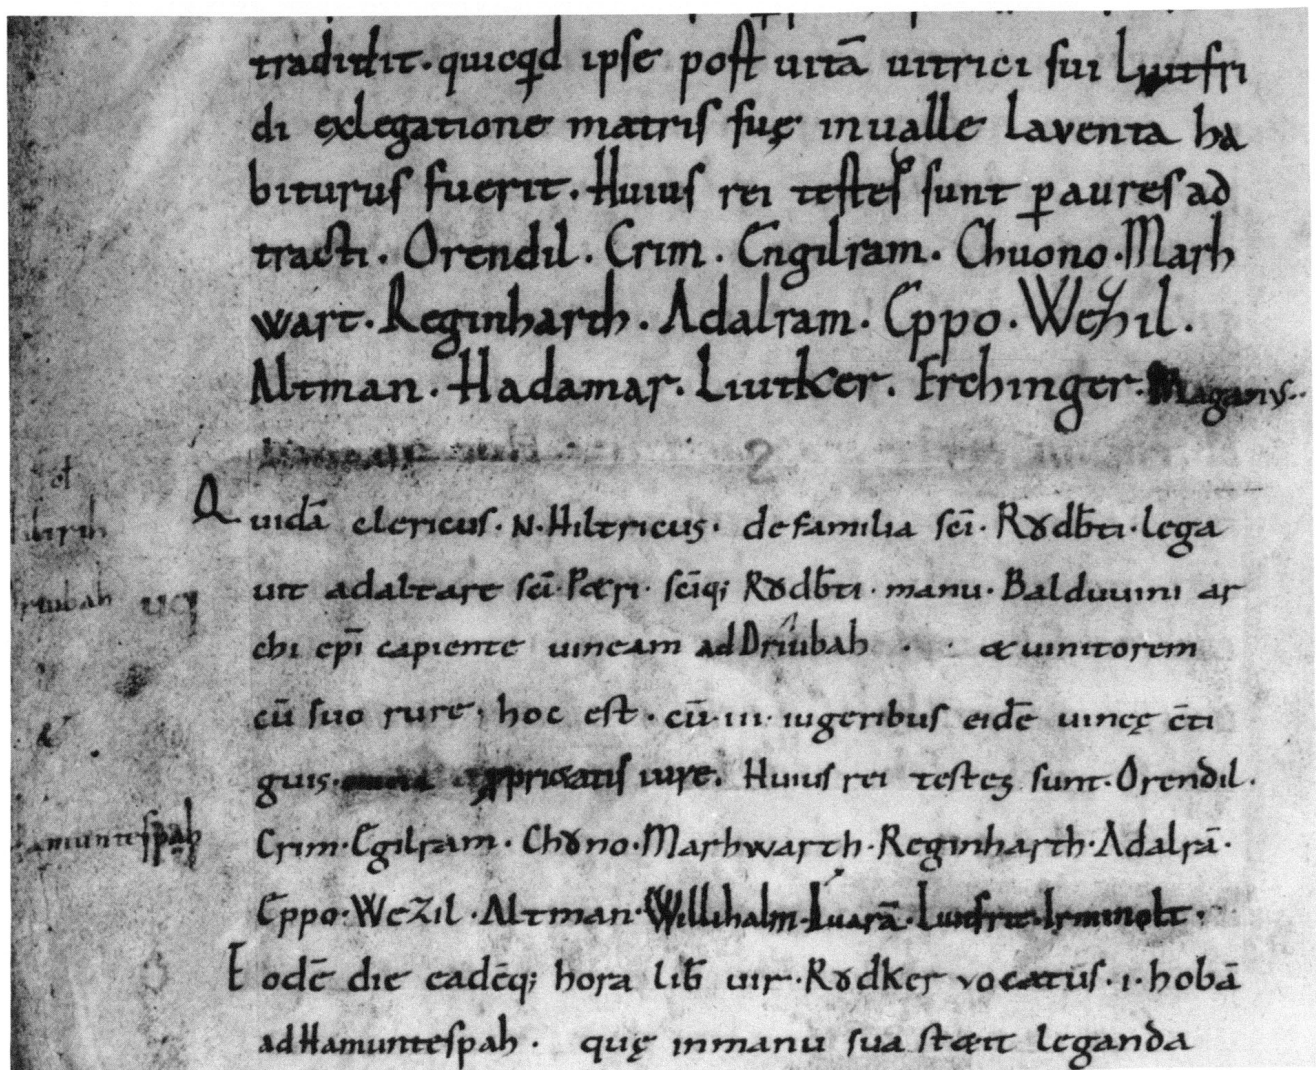 tradidit. quicqd ipse post uitā uitrici sui Liutfri
di exlegatione matris suę inualle Laventa ha
biturus fuerit. Huius rei testes sunt p̱ aures ad
tracti. Orendil. Crim. Engilram. Chuono. Marh
wart. Reginharth. Adalram. Eppo. Wezil.
Altman. Hadamar. Liutker. Erchinger. Maganus.
Quidā clericus. N. Hiltricus. defamilia sc̄i. Rȣdb̄ti. lega
uit adaltare sc̄i. Petri. sc̄iq; Rȣdb̄ti. manu. Balduuini ar
chi ep̄i capiente uineam ad Driubah. & uinitorem
cū suo rure, hoc est. cū. iii. iugeribus eidē uineę c̄ti
guis. iure. Huius rei testes sunt. Orendil.
Crim. Egilram. Chȣno. Marhwarth. Reginharth. Adalrā.
Eppo. Wezil. Altman. Willihalm. Liutfrit. Irminolt.
Eodē die eadēq; hora lib̄ uir. Rȣdker vocatus. i. hobā
adHamuntespah. quę inmanu sua stetit leganda
riubah
&
amuntespah